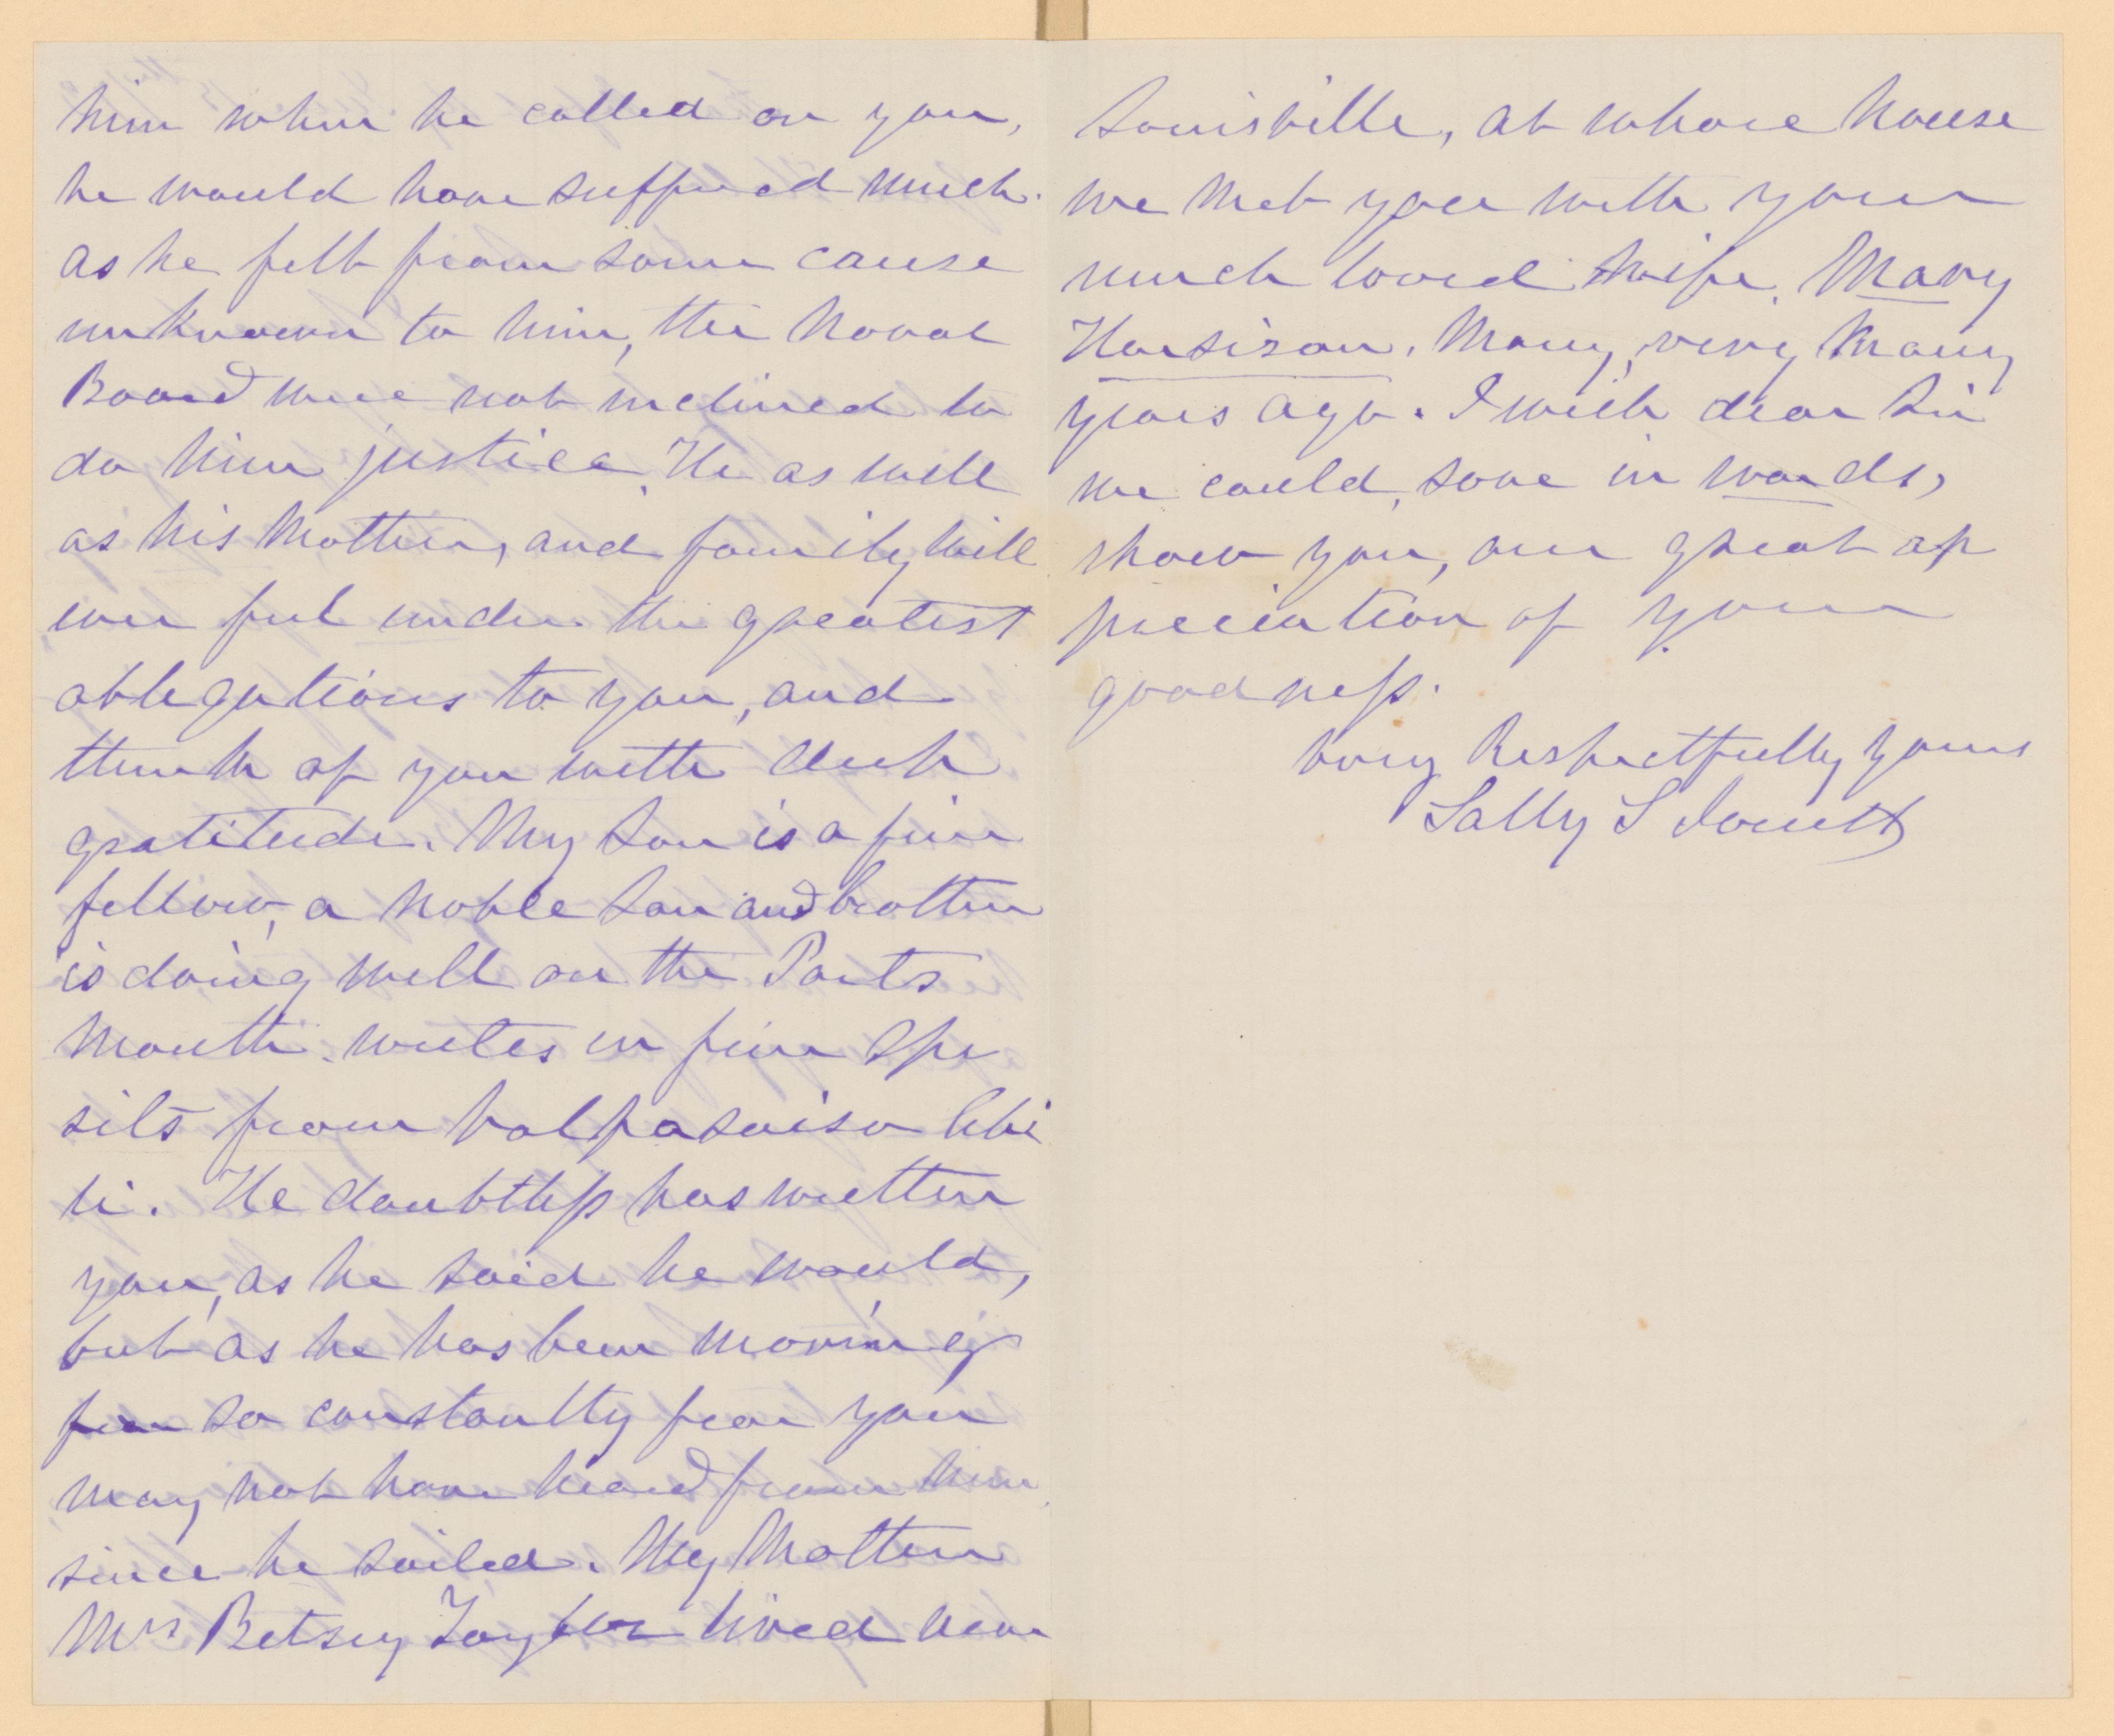 him when he called on you,
he would have suffered much.
as he felt from some cause
unknown to him, the Naval
Board were not inclined to
do him justice. He as well
as his Mother, and family will
ever feel under the greatest
obligations to you, and
think of you with deep
gratitude. My Son is a fine
fellow, a noble Son and brother
is doing well on the Ports
mouth. writes in fine spi
rits from Valparaiso Chi
li. He doubtless has written
you, as he said he would,
but as he has been moving
so constantly fear you
may not have heard from him
since he sailed. My Mother
Mrs Betsey Taylor lived near
Louisville, at whose house
we met you with your
much loved wife, Mary
Harrison. Many, very many
years ago. I wish dear Sir
we could, save in words,
show you, our great ap
preciation of your
goodness.
Very Respectfully yours
Sally S Jouett